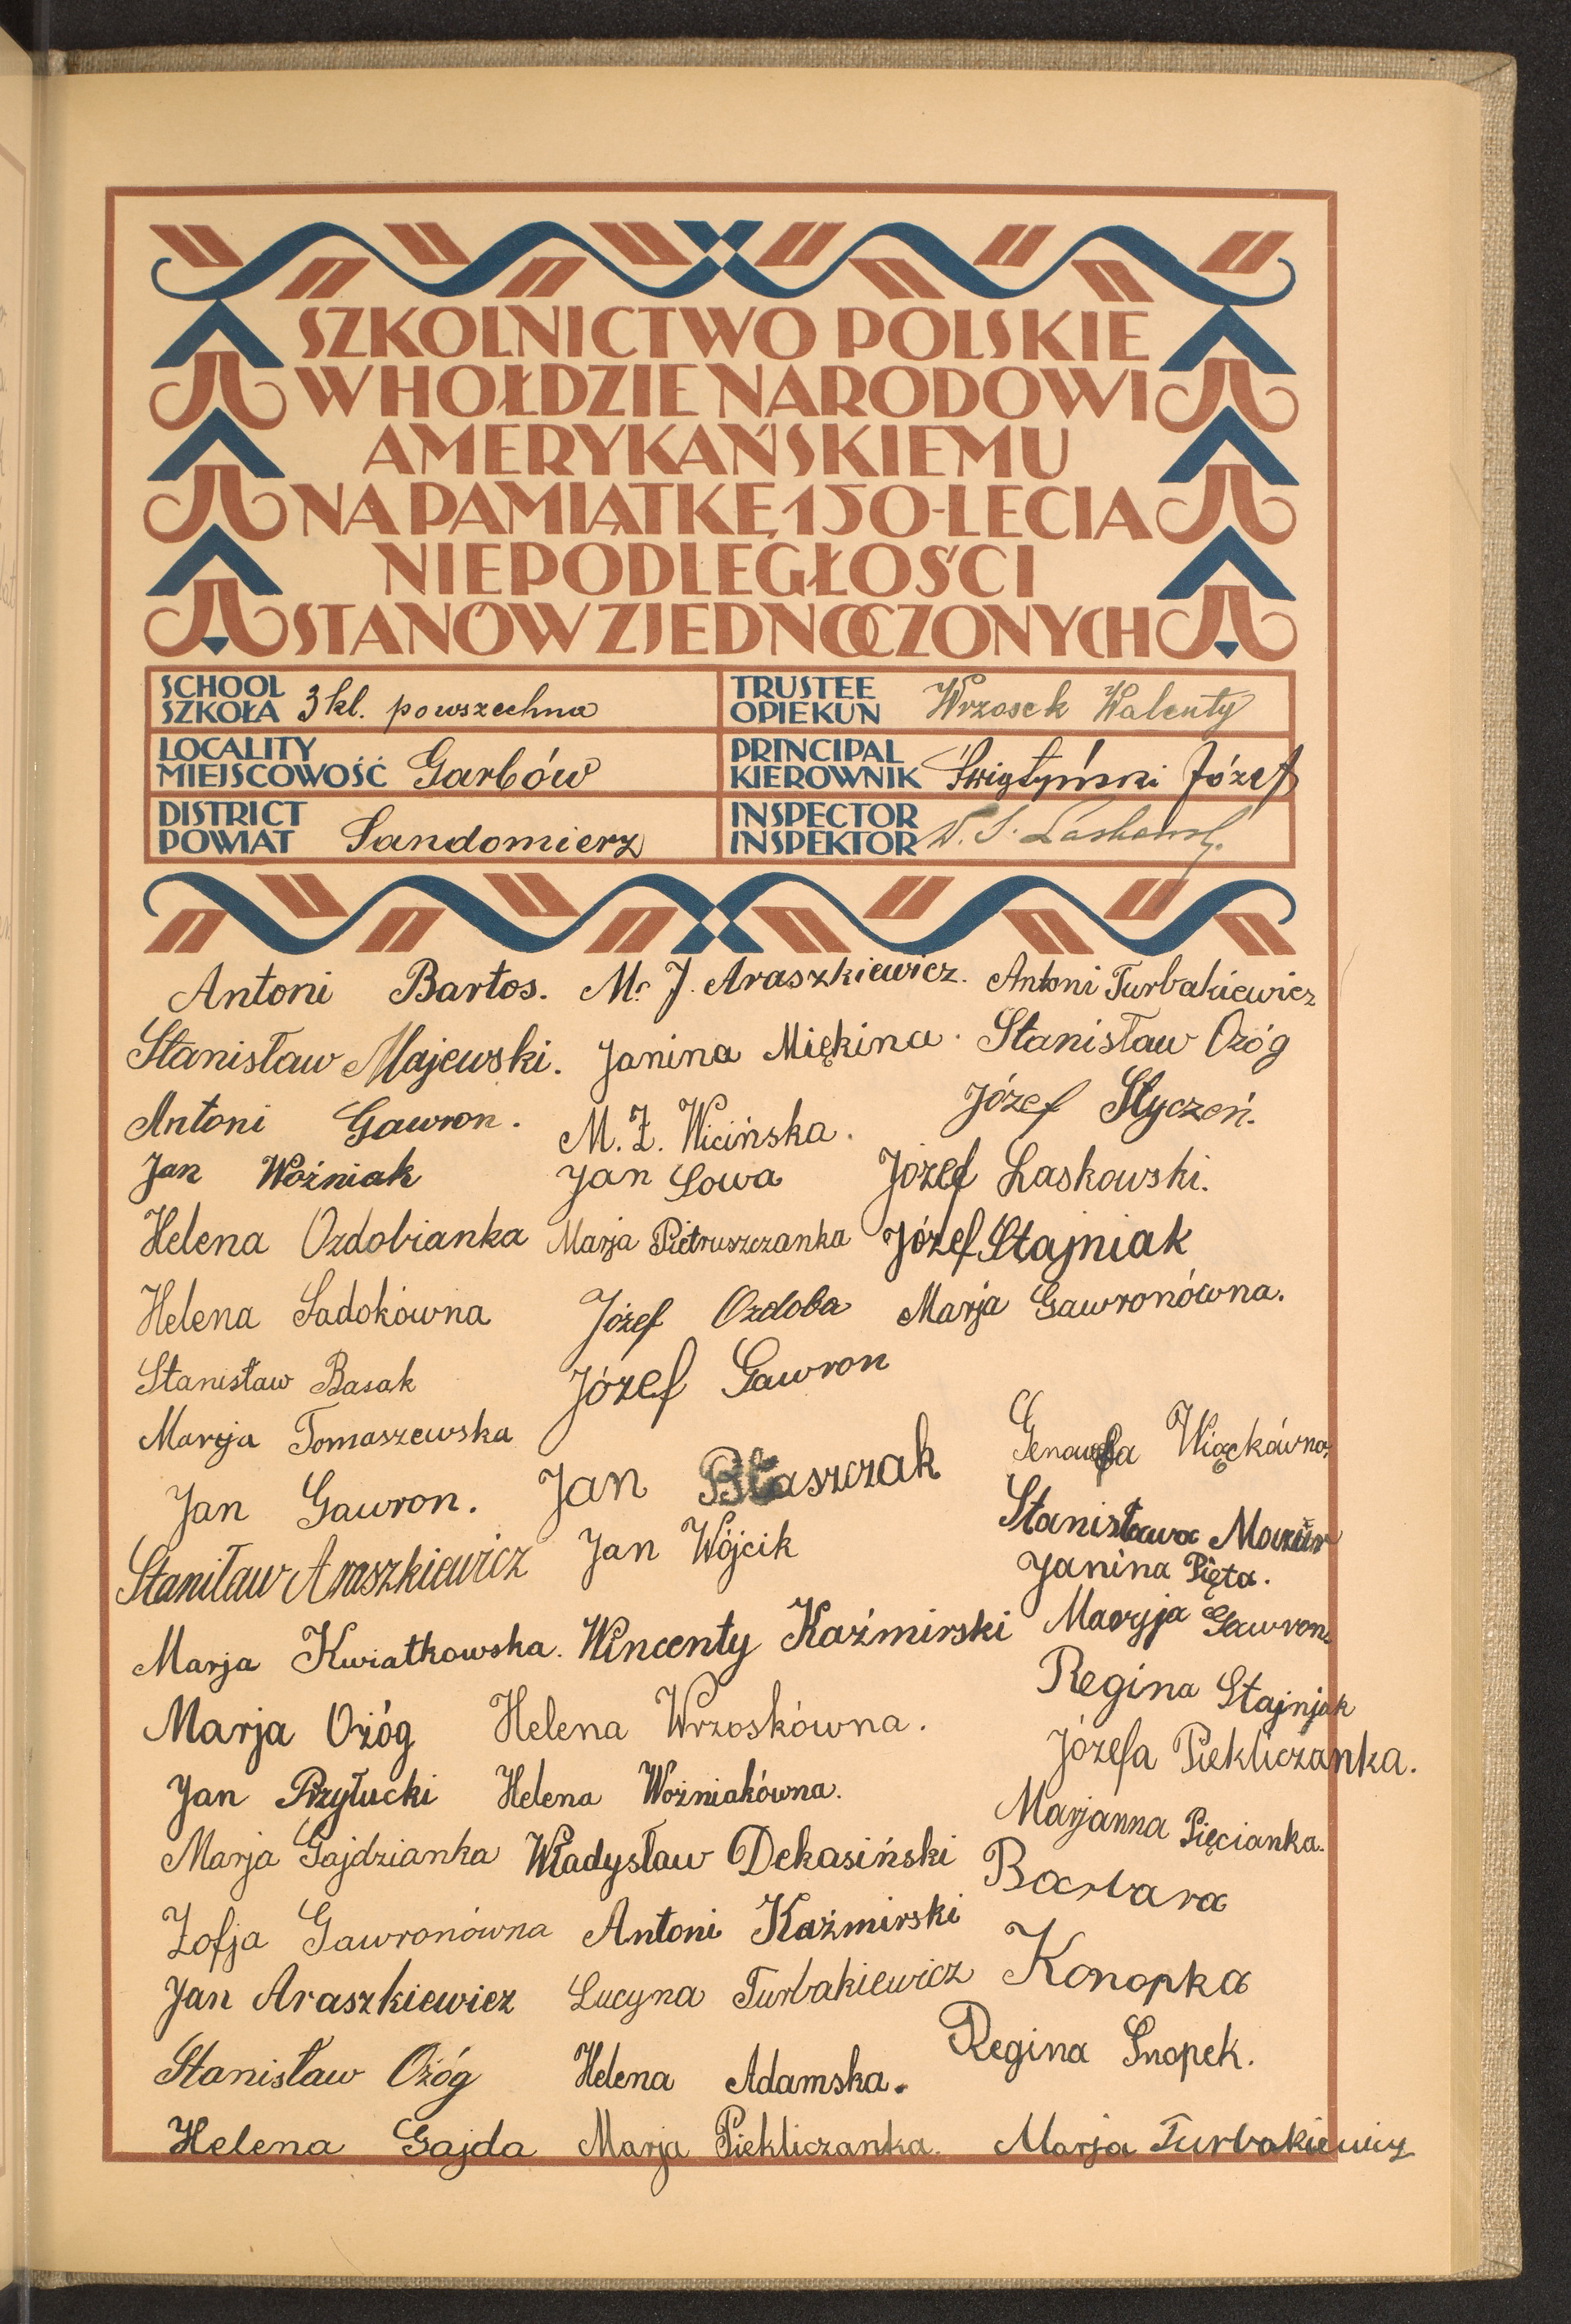 SZKOLNICTWO POLSKIE
W HOŁDZIE NARODOWI
AMERYKAŃSKIEMU
NA PAMIĄTKĘ 150-LECIA
NIEPODLEGŁOŚCI
STANÓW ZJEDNOCZONYCH
SCHOOL
SZKOŁA 3 kl. powszechna
TRUSTEE
OPIEKUN Wrzosek Walenty
LOCALITY
MIEJSCOWOŚĆ Garbów
PRINCIPAL
KIEROWNIK Świątyński Józef
DISTRICT
POWIAT Sandomierz
INSPECTOR
INSPEKTOR
Antoni Bartos. M. J. Araszkiewicz. Antoni Turbakiewicz
Stanisław Majewski. Janina Miękina. Stanisław Ożóg
Antoni Gawron. M. Z. Wicińska. Józef Styczeń.
Jan Woźniak Jan Sowa Józef Laskowski.
Helena Ozdobianka Marja Pietruszczanka Józef Stajniak
Helena Sadokówna Józef Ozdoba Marja Gawronówna.
Stanisław Basak Józef Gawron
Maryja Tomaszewska Genowefa Wiąckówna
Jan Gawron. Jan Błaszczak Stanisława Mazur
Staniław Araszkiewicz Jan Wójcik Janina Pięta.
Marja Kwiatkowska. Wincenty Kaźmirski Maryja Gawron
Regina Stajnjak
Marja Ożóg Helena Wrzoskówna. Józefa Piekliczanka.
Jan Przyłucki Helena Woźniakówna. Marjanna Pięcianka.
Marja Gajdzianka Władysław Dekasiński Barbara
Zofja Gawronówna Antoni Kaźmirski Konopka
Jan Araszkiewicz Lucyna Turbakiewicz Regina Snopek.
Stanisław Ożóg Helena Adamska.
Helena Gajda Marja Piekliczanka. Marja Turbakiewicz